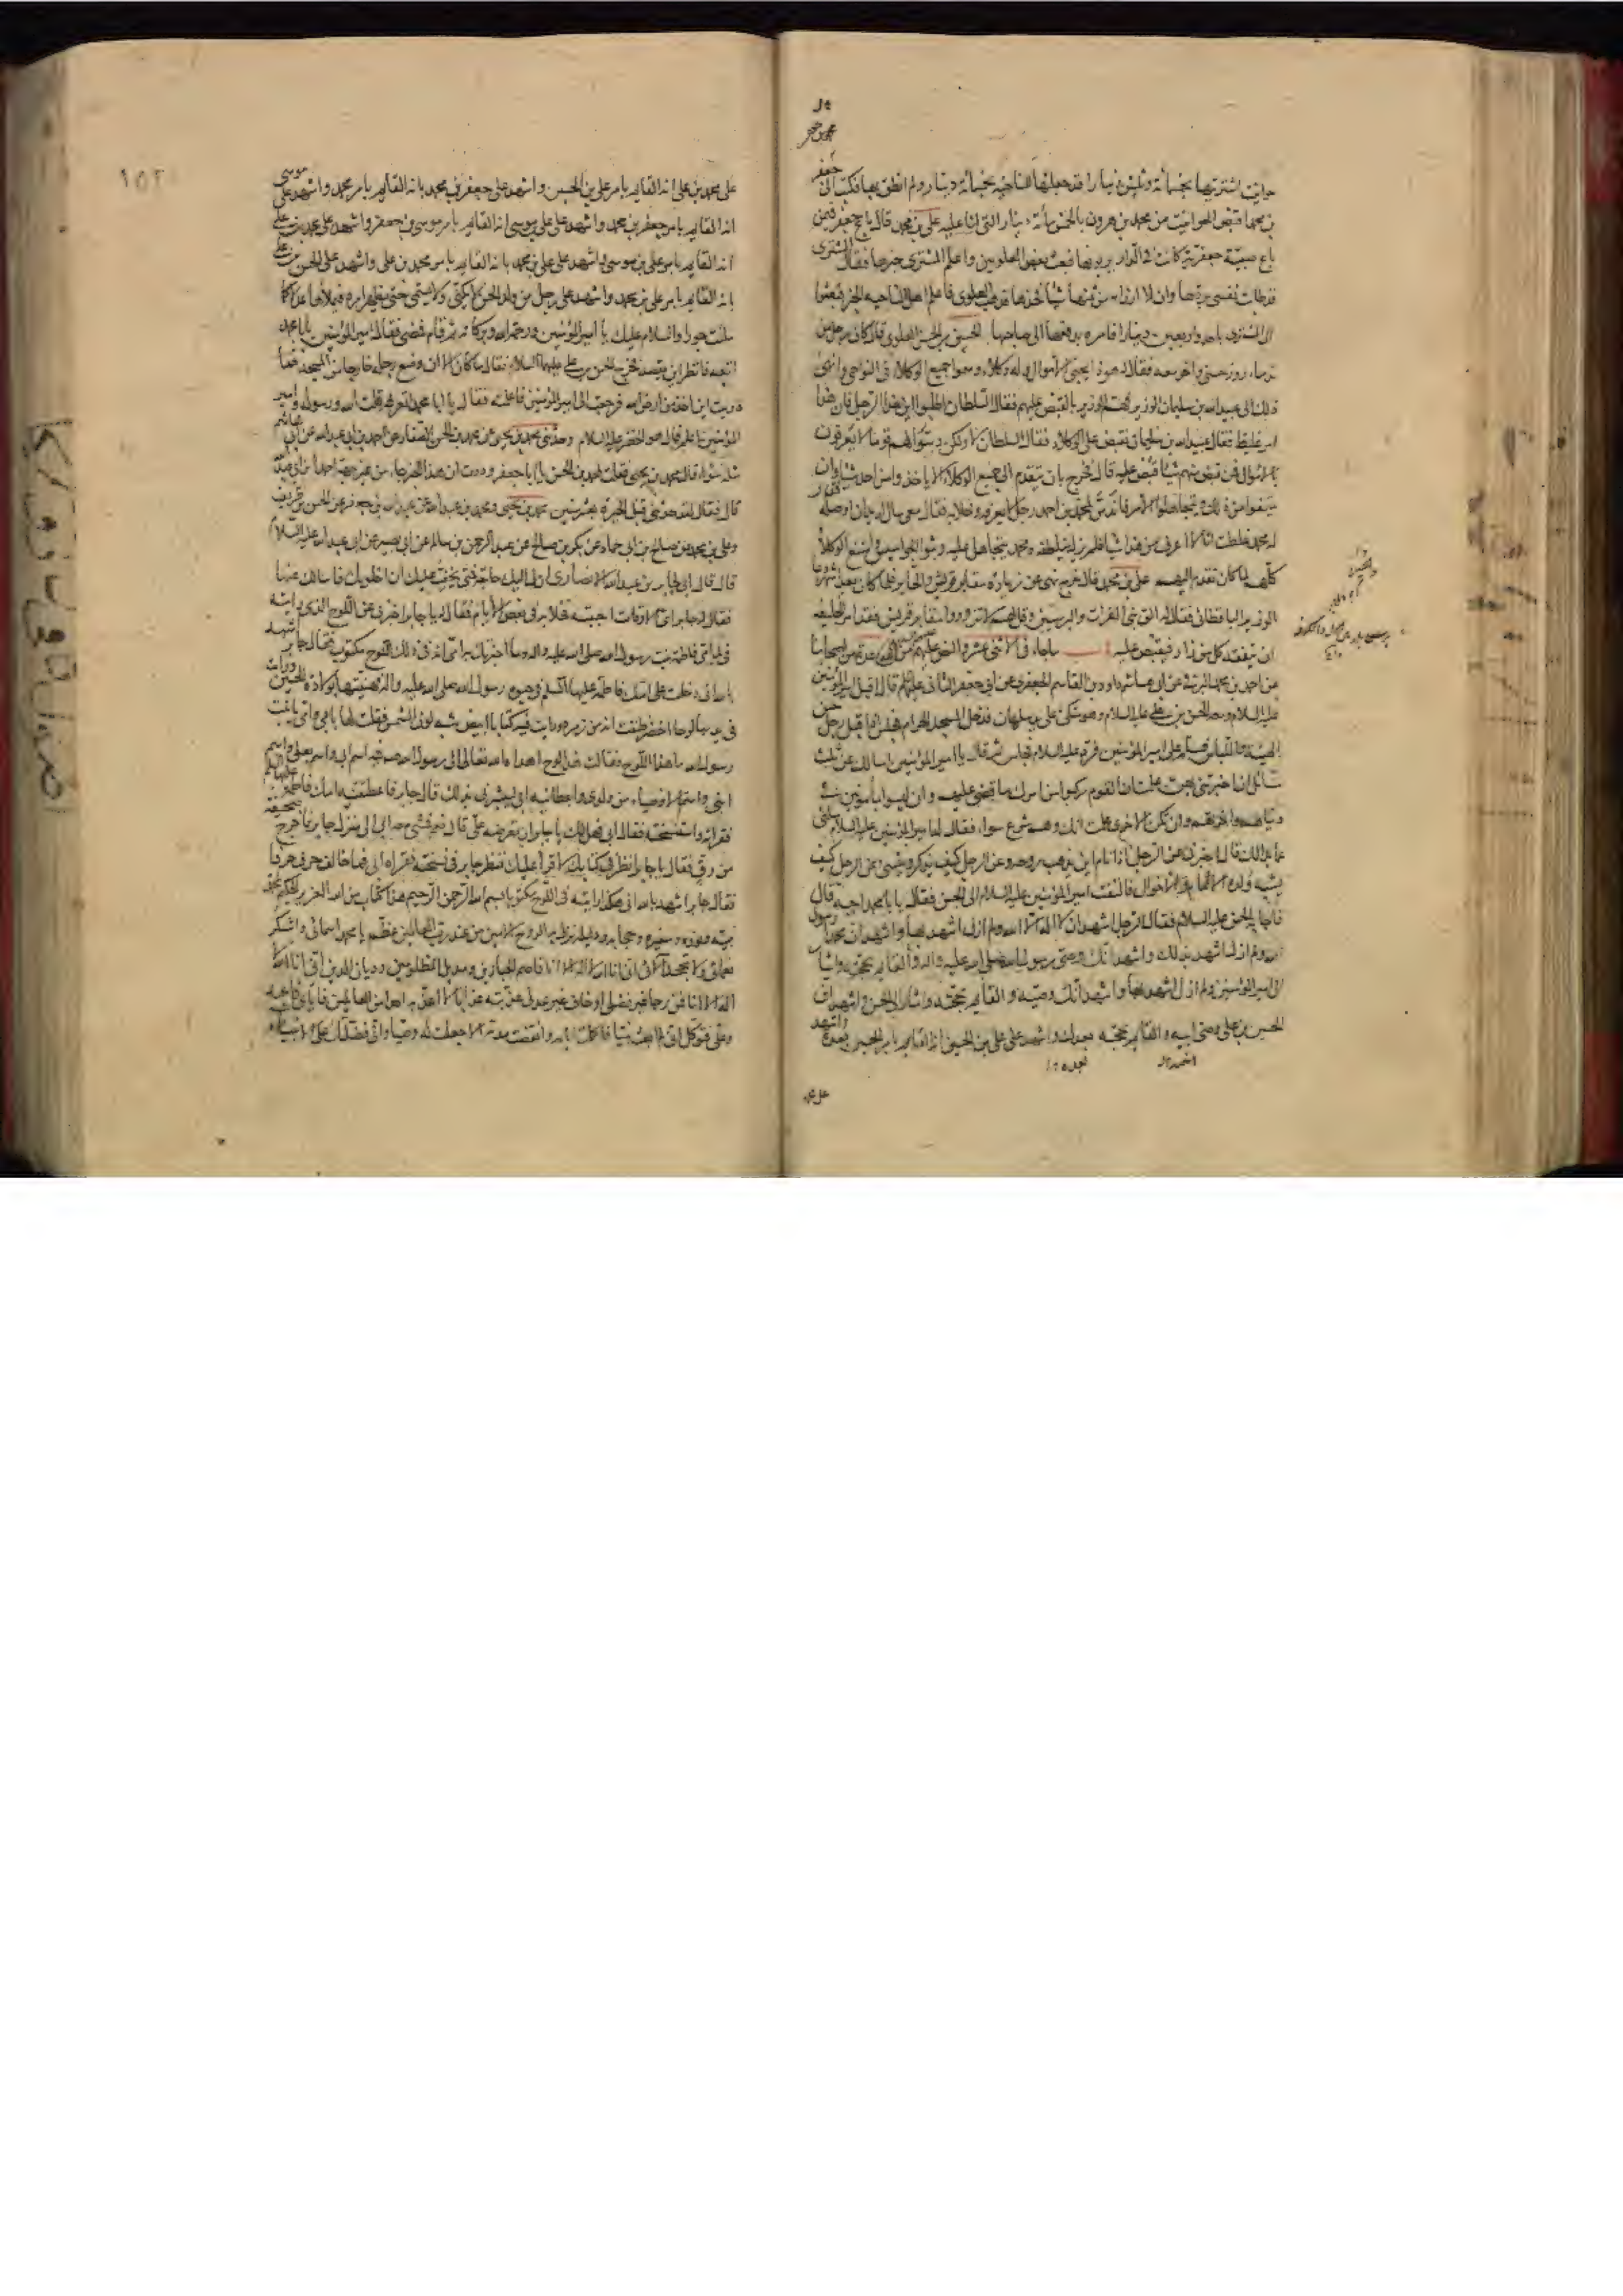 حوانيت اشتريتها بخمسمائة وثلثين دينارا قد جعلتها للناحية بخمسمائة دينار ولم انطق بها فكتب الى جعفر
بن محمد اقبض الحوانيت من محمد بن هرون بالخمسمائة دينار التى لنا عليه على بن محمد قال باع جعفر فيمن
باع صبية جعفرية كانت فى الدار يربونها فبعث بعض العلويين واعلم المشترى خبرها فقال المشترى
قد طابت نفسى بردها وان لا ارزا من ثمنها شيئا فخذها فذهب العلوى فاعلم اهل الناحية الخبر فبعثوا
الى المشترى باحد واربعين دينارا فامره بدفعها الى صاحبها الحسين بن الحسن العلوى قال كان رجل من
ندماء روز حسنى واخر معه فقال له هوذا يجبى الاموال وله وكلاء وسموا جميع الوكلاء فى النواحى وانهى
ذلك الى عبيد الله بن سليمان الوزير فهم الوزير بالقبض عليهم فقال السلطان اطلبوا اين هذا الرجل فان هذا
امر غليظ فقال عبيد الله بن سليمان نقبض على الوكلاء فقال السلطان لا ولكن دسوا لهم قوما لا يعرفون
بالاموال فمن قبض منهم شيئا قبض عليه قال فخرج بان يتقدم الى جميع الوكلاء الا ياخذوا من احد شيئا وان
يمتنعوا من ذلك ويتجاهلوا الامر فاندس لمحمد بن احمد رجل لا يعرفه وخلا به فقال معى مال اريد ان اوصله
له محمد غلطت انا لا اعرف من هذا شيئا فلم يزل يتلطفه ومحمد يتجاهل عليه وبثوا الجواسيس وامتنع الوكلاء
كلهم لما كان تقدم اليهم على بن محمد قال خرج نهى عن زيارة مقابر قريش والحاير فلما كان بعد اشهر دعا
الوزير الباقطائى فقال له الق بنى الفرات والبرسيين وقل لهم لا تزوروا مقابر قريش فقد امر الخليفة
ان يتفقد كل من زار فيقبض عليه ما جاء فى الاثنى عشر والنص عليهم عدة من اصحابنا
عن احمد بن محمد البرقى عن ابى هاشم داود بن القاسم الجعفرى عن ابى جعفر الثانى عليه السلام قال اقبل امير المؤمنين
عليه السلام ومعه الحسن بن على عليه السلام وهو متكى على يد سلمان فدخل المسجد الحرام فجلس اذ اقبل رجل حسن
الهيئة واللباس فسلم على امير المؤمنين فرد عليه السلام فجلس ثم قال يا امير المؤمنين اسالك عن ثلث
مسائل ان اخبرتنى بهن علمت ان القوم ركبوا من امرك ما قضى عليهم وان ليسوا بمأمونين فى
دنياهم واخرتهم وان تكن الاخرى علمت انك وهم شرع سواء فقال له امير المؤمنين عليه السلام سلنى
عما بدا لك قال اخبرنى عن الرجل اذا نام اين تذهب روحه وعن الرجل كيف يذكر وينسى وعن الرجل كيف
يشبه ولده الاعمام والاخوال فالتفت امير المؤمنين عليه السلام الى الحسن فقال يا با محمد اجبه قال
فاجابه الحسن عليه السلام فقال الرجل اشهد ان لا اله الا الله ولم ازل اشهد بها واشهد ان محمدا رسول
الله ولم ازل اشهد بذلك واشهد انك وصى رسول الله صلى الله عليه واله والقائم بحجته واشار
الى امير المؤمنين ولم ازل اشهد بها واشهد انك وصيه والقائم بحجته واشار الى الحسن واشهد ان
الحسين بن على وصى ابيه والقائم بحجته بعدك واشهد على على بن الحسين انه القائم بامر الحسين بعده واشهد
على محمد بن على انه القائم بامر على بن الحسين واشهد على جعفر بن محمد بانه القائم بامر محمد واشهد على موسى
انه القائم بامر جعفر بن محمد واشهد على على بن موسى انه القائم بامر موسى بن جعفر واشهد على محمد بن على
انه القائم بامر على بن موسى واشهد على على بن محمد بانه القائم بامر محمد بن على واشهد على الحسن بن على
بانه القائم بامر على بن محمد واشهد على رجل من ولد الحسن لا يكنى ولا يسمى حتى يظهر امره فيملاها عدلا كما
ملئت جورا والسلام عليك يا امير المؤمنين ورحمة الله وبركاته ثم قام فمضى فقال امير المؤمنين يا با محمد
اتبعه فانظر اين يقصد فخرج الحسن بن على عليهما السلام فقال ما كان الا ان وضع رجله خارجا من المسجد فما
دريت اين اخذ من ارض الله فرجعت الى امير المؤمنين فاعلمته فقال يا ابا محمد اتعرفه قلت الله ورسوله وامير
المؤمنين اعلم قال هو الخضر عليه السلام وحدثنى محمد بن يحيى عن محمد بن الحسن الصفار عن احمد بن ابى عبد الله عن ابى هاشم
مثله سواء قال محمد بن يحيى فقلت لمحمد بن الحسن يا ابا جعفر وددت ان هذا الخبر جاء من غير جهة احمد بن ابى عبد الله
قال فقال لقد حدثنى قبل الحيرة بعشر سنين محمد بن يحيى ومحمد بن عبد الله عن عبد الله بن جعفر عن الحسن بن ظريف
وعلى بن محمد عن صالح بن ابى حماد عن بكر بن صالح عن عبد الرحمن بن سالم عن ابى بصير عن ابى عبد الله عليه السلام
قال قال ابى لجابر بن عبد الله الانصارى ان لى اليك حاجة فمتى يخف عليك ان اخلو بك فاسالك عنها
فقال له جابر اى الاوقات احببته فخلا به فى بعض الايام فقال له يا جابر اخبرنى عن اللوح الذى رايته
فى يد امى فاطمة بنت رسول الله صلى الله عليه واله وما اخبرتك به امى انه فى ذلك اللوح مكتوب فقال جابر اشهد
بالله انى دخلت على امك فاطمة عليها السلام فى حيوة رسول الله صلى الله عليه واله فهنيتها بولادة الحسين ورايت
فى يديها لوحا اخضر ظننت انه من زمرد ورايت فيه كتابا ابيض شبه لون الشمس فقلت لها بابى وامى يا بنت
رسول الله ما هذا اللوح فقالت هذا لوح اهداه الله تعالى الى رسول الله ص فيه اسم ابى واسم بعلى واسم
ابنى واسم الاوصياء من ولدى واعطانيه ابى ليبشرنى بذلك قال جابر فاعطتنيه امك فاطمة عليها السلم
فقراته واستنسخته فقال له ابى فهل لك يا جابر ان تعرضه على قال نعم فمشى معه ابى الى منزل جابر فاخرج صحيفة
من رق فقال يا جابر انظر فى كتابك لاقرا عليك فنظر جابر فى نسخته فقراه ابى فما خالف حرف حرفا
فقال جابر اشهد بالله انى هكذا رايته فى اللوح مكتوبا بسم الله الرحمن الرحيم هذا كتاب من الله العزيز الحكيم لمحمد
نبيه ونوره وسفيره وحجابه ودليله نزل به الروح الامين من عند رب العالمين عظم يا محمد اسمائى واشكر
نعمائى ولا تجحد الائى انى انا الله لا اله الا انا قاصم الجبارين ومديل المظلومين وديان الدين انى انا الله لا
اله الا انا فمن رجا غير فضلى او خاف غير عدلى عذبته عذابا لا اعذبه احدا من العالمين فاياى فاعبد
وعلى فتوكل انى لم ابعث نبيا فاكملت ايامه وانقضت مدته الا جعلت له وصيا وانى فضلتك على الانبياء
١٥٢